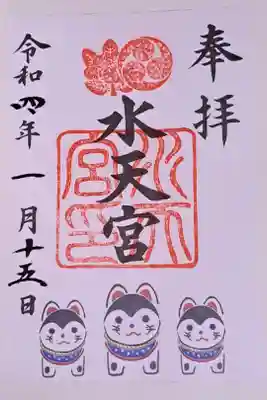 奉拝
水天宮
令和四年一月十五日